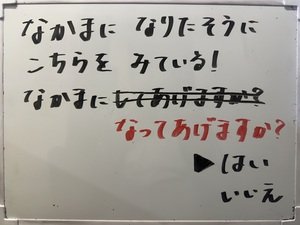 なかまに なりたそうに
こちらを みている!
なかまにしてあげますか?
なってあげますか?
▶はい
いいえ